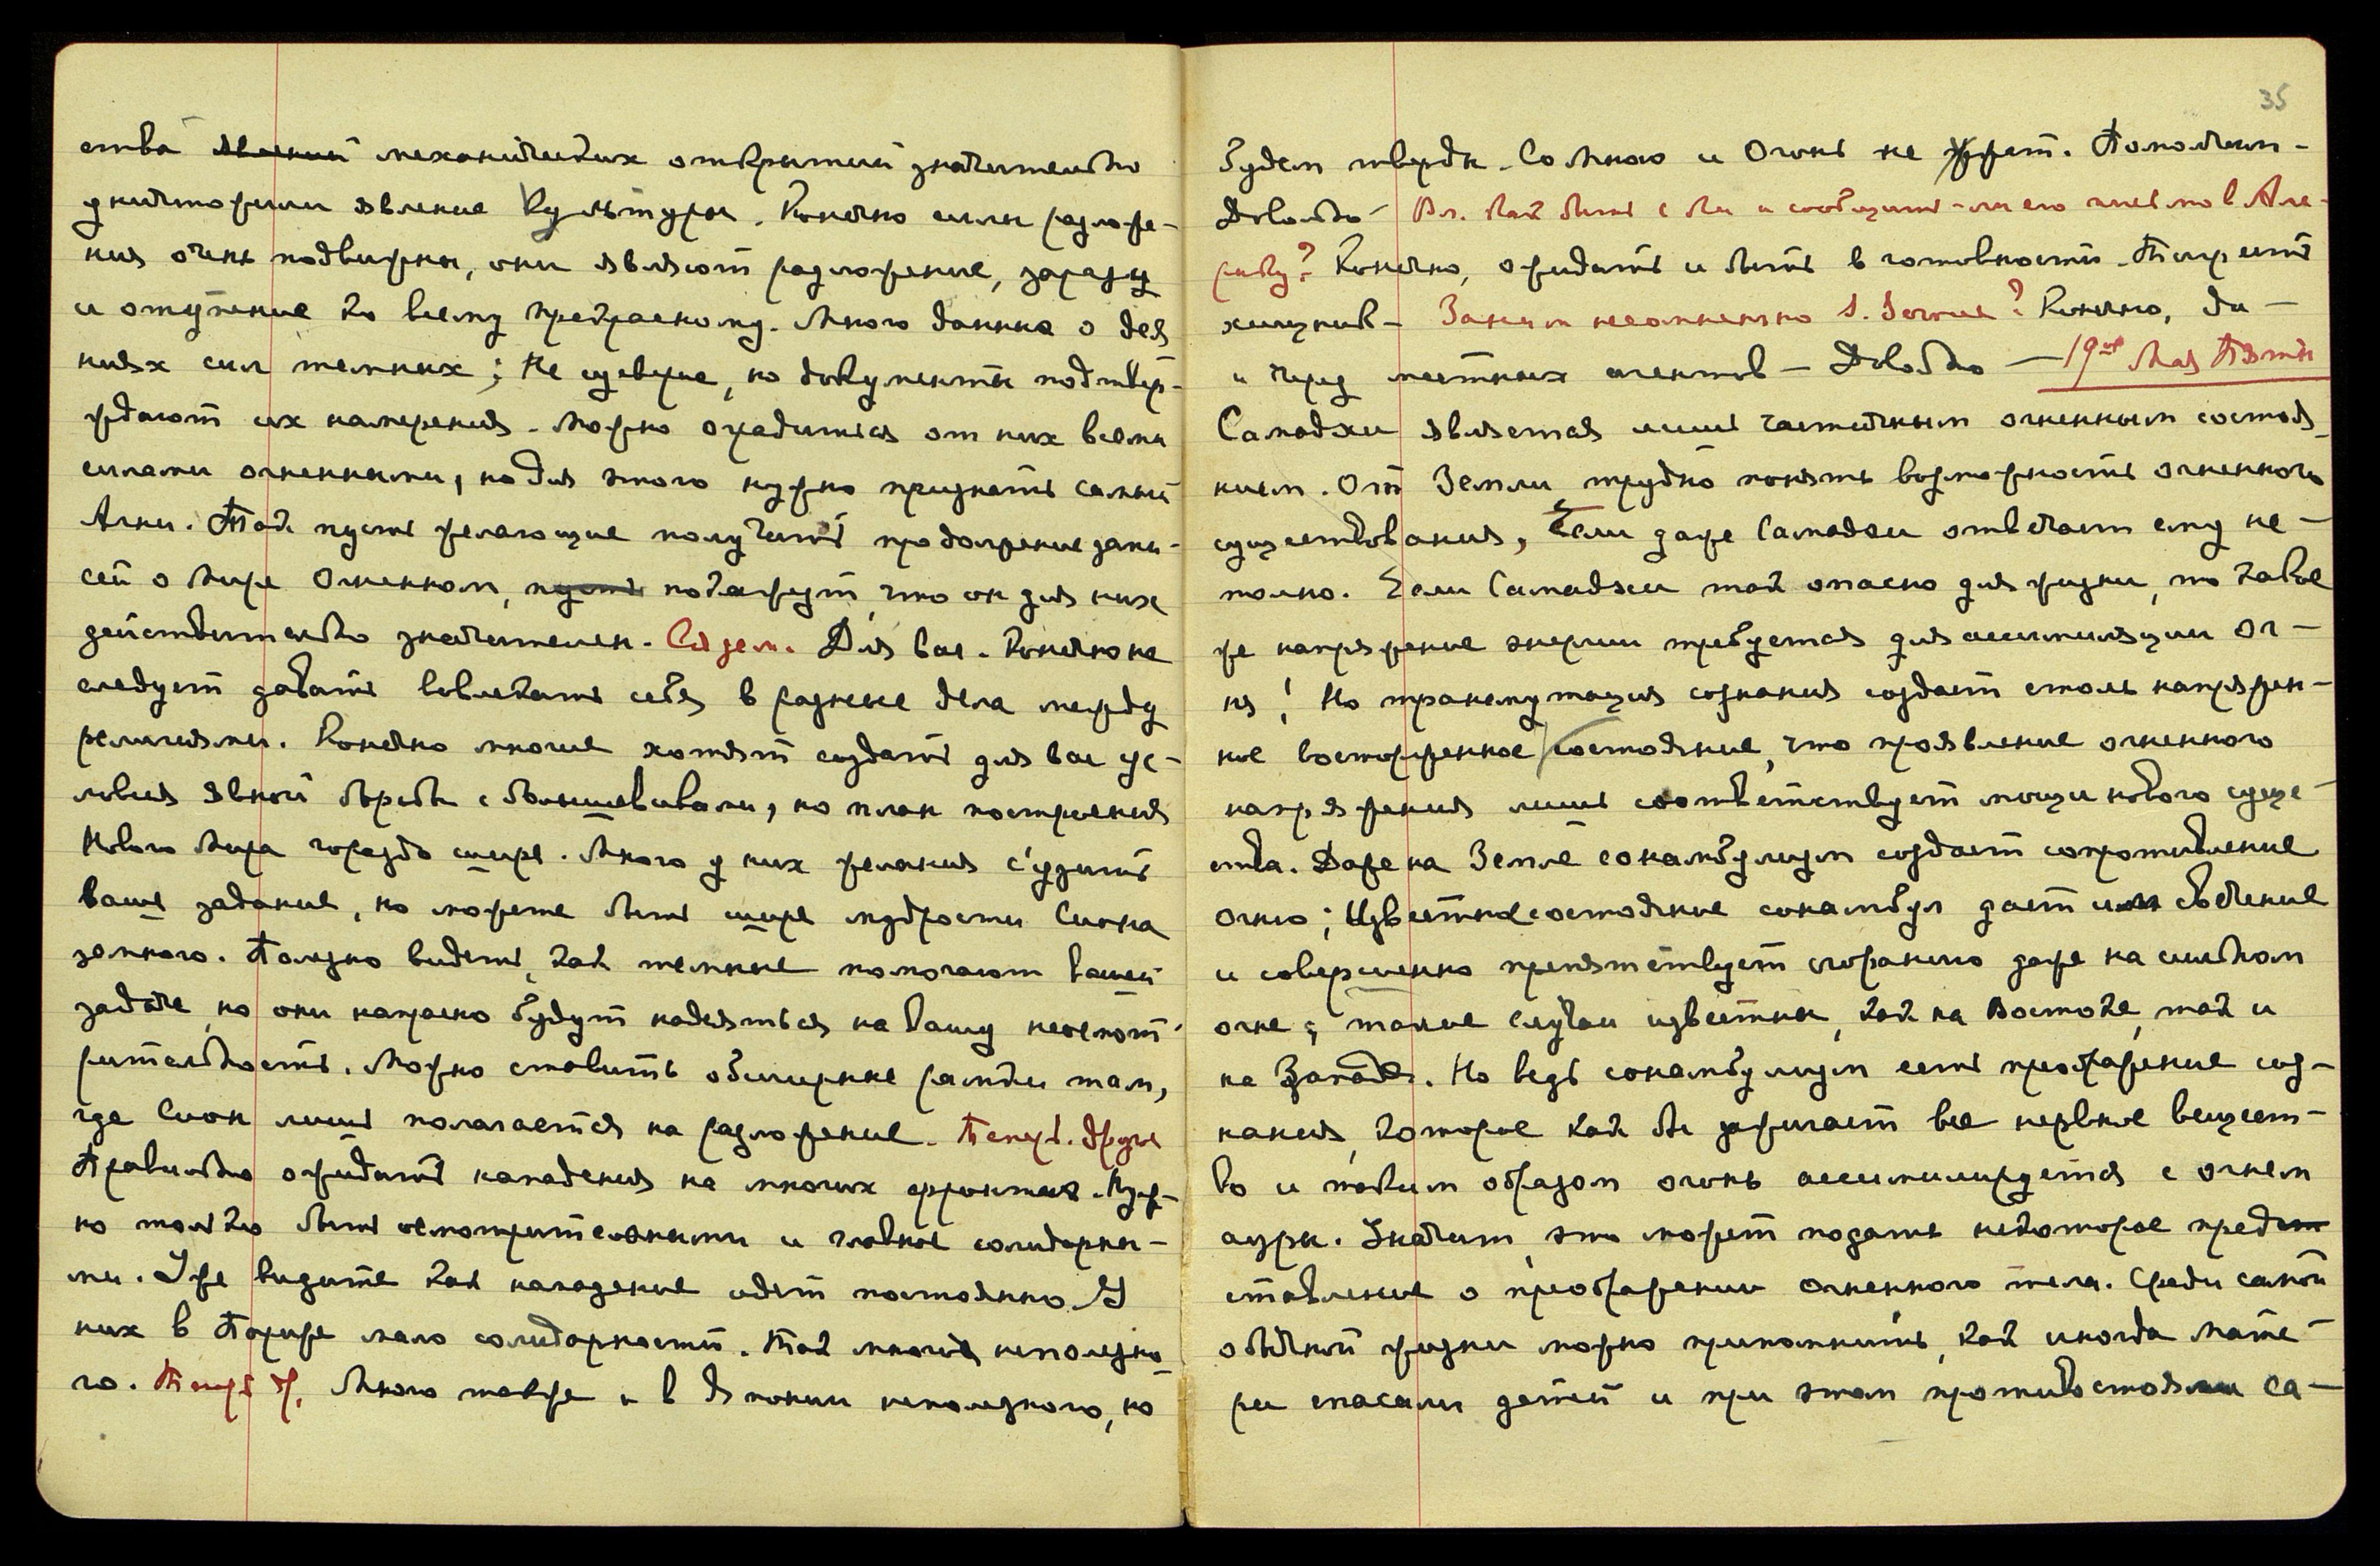 ства явлений механических открытий значительно
уничтожили явление Культуры. Конечно силы разложе-
ния очень подвижны, они являют разложение, заразу
и отупение ко всему прекрасному. Много данных о дея
ниях сил темных; Не суеверие, но документы подтвер-
ждают их намерения. Можно оградиться от них всеми
силами огненными, но для этого нужно признать самый
Агни. Так пусть желающие получить продолжение запи-
сей о Мире Огненном, пусть покажут, что он для них
действительно значителен. Сядем. Для вас. Конечно не
следует давать вовлекать себя в разные дела между
религиями. Конечно многие хотят создать для вас ус-
ловия явной борьбы с большевиками, но план построения
Нового Мира гораздо шире. Много у них желания сузить
ваше задание, но можете быть шире мудрости Сиона
земного. Полезно видеть, как темные помогают вашей
задаче, но они напрасно будут надеяться на вашу неосмот-
рительность. Можно ставить обширные рамки там,
где Сион лишь полагается на разложение. Теперь. другое
Правильно ожидать нападения на многих фронтах. Нуж-
но только быть осмотрительными и главное солидарны-
ми. Уже видите как нападение идет постоянно. У
них в Париже мало солидарности. Так многое неполезно
го. Теперь Я. Много также и в Японии неполезного, но
35
будем тверды. Со Мною и Огонь не жжет. Помолчим-
Довольно- Вл. Как быть с
рику? Конечно, ожидать и быть в готовности. Теперь
хищник- Заким несомненно ? Конечно, да-
и через местных агентов- Довольно- 19ое Мая Пятн
Самадхи является лишь частичным огненным состоя-
нием. От Земли трудно понять возможность огненного
существования, Если даже Самадхи отвечает ему не-
полно. Если Самадхи так опасно для жизни, то какое
же напряжение энергии требуется для ассимиляции Ог-
ня! Но трансмутация сознания создает столь напряжен-
ное восторженное состояние, что проявление огненного
напряжения лишь соответствует мощи нового суще-
ства. Даже на Земле сонамбулизм создает сопротивление
огню; Известное состояние сонамбул дает им свечение
и совершенно препятствует сгоранию даже на сильном
огне; такие случаи известны, как на Востоке, так и
на Западе. Но ведь сонамбулизм есть преображение соз-
нания, которое как бы зажигает все нервное вещест-
во и таким образом огонь ассимилируется с огнем
ауры. Значит, это может подать некоторое предст
ставление о преображении Огненного тела. Среди самой
обычной жизни можно припомнить, как иногда мате-
ри спасали детей и при этом противостояли са-